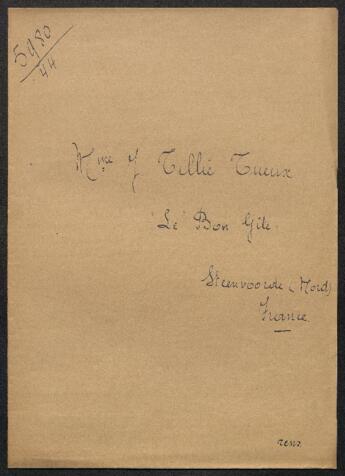 5980
44
Mme J Tillié Tueux
"Le Bon Gîte"
Steenvoorde (Nord)
France
rens